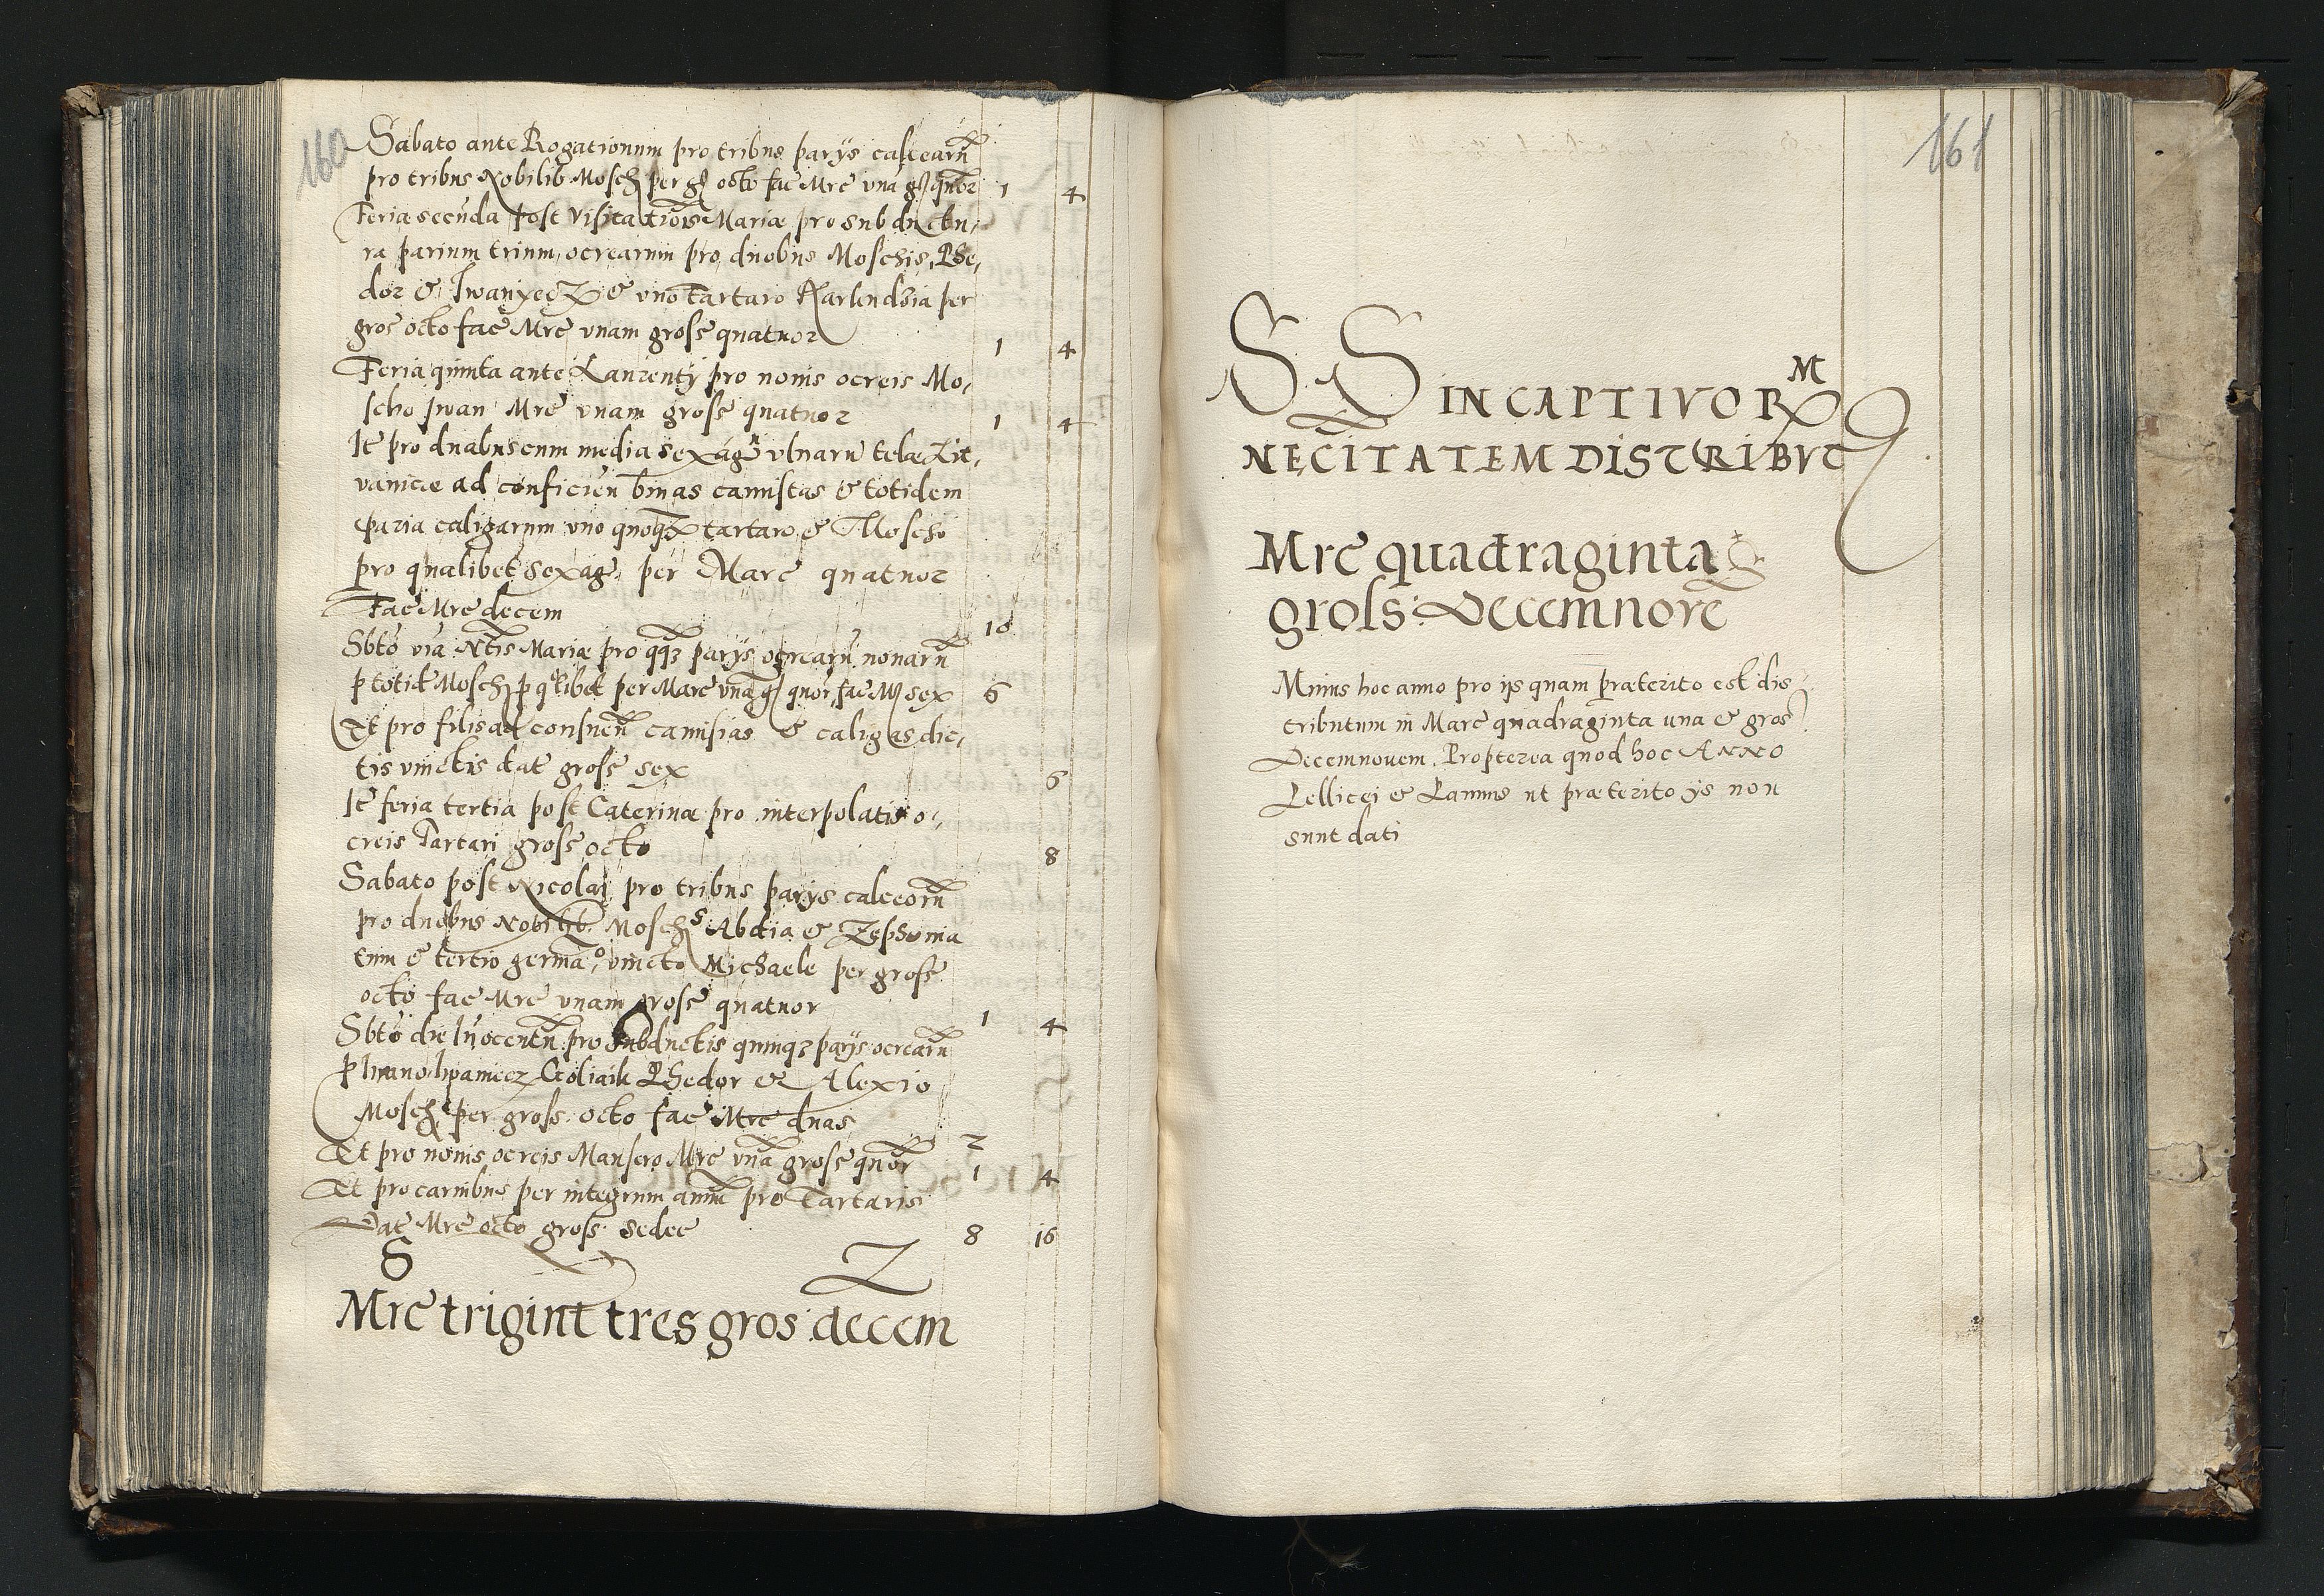 160
Sabato ante Rogationum pro tribus parijs calcearũ
pro tribus Nobilib Mosch per gſ octo fac Mrc vna gſ quõr 1 4
Feria secũda post Visitatiõis Mariæ pro subductu,
ra parium trium ocrearum pro duobus Moschis, Phe,
dor & Iwanyecz & vno Tartaro Karlendsia per
gros octo fac Mrc vnam gross quatuor 1 4
Feria quinta ante Laurentij pro nouis ocreis Mo,
scho Iwan Mrc vnam gross quatuor 1 4
It pro duabus cum media sexag vlnarũ telæ Lit,
vanicæ ad conficien binas camisias & totidem
paria caligarum vno quoqʒ tartaro & Moscho
pro qualibet sexag. per Marc quatuor
Fac Mrc decem 10
Sbto via Ntis Mariæ pro qqʒ parijs ocrearũ nouarũ
p totid Mosch p qlibet per Marc vnã gſ quõr, fac Mſ sex 6
Et pro filis ad consuen camisias & caligas dic,
tis vinctis dat gross sex 6
It feria tertia post Caterinæ pro interpolatis o,
creis Tartari gross octo 8
Sabato post Nicolai pro tribus parijs calceorũ
pro duobus Nobilib. Moschs Abdia & Zephonia
tum & tertio germão, vincto Michaele per gross
octo fac Mrc vnam gross quatuor 1 4
Sbto die Iñocentũ pro subductis quinqʒ parijs ocrearũ
p Iwano Iwaniecz Phedor & Alexio
Mosch per gross. octo fac Mrc duas 2
Et pro nouis ocreis Mansero Mrc vnã gross quõr 1 4
Et pro carnibus per integrum annũ pro Tartaris
Dat Mrc octo gross. sedec 8 16
S Z
Mrc trigint tres gros decem
161
S. S IN CAPTIVOR M
NECITATEM DISTRIBVT
Mrc quadraginta
gross: Decemnove
Minus hoc anno pro ijs quam præterito est dis,
tributum in Marc quadraginta una & gros
Decemnouem. Propterea quod hoc ANNO
Pellicei & Pannus ut præterito ijs non
sunt dati